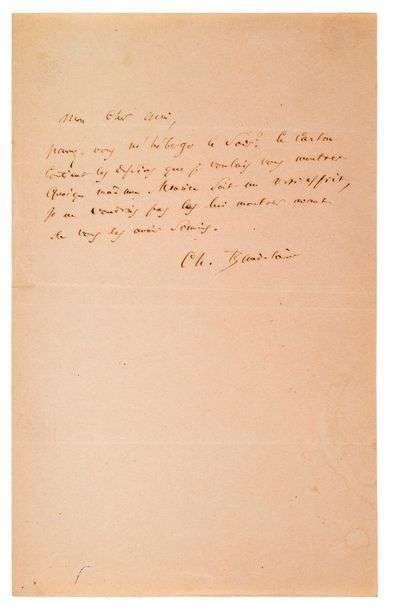 Mon cher ami,
pouvez vous m'héberger ce soir? Le carton
contient les dessins que je voulais vous montrer
Quoique madame soit un très esprit,
je ne voudrais pas les lui montrer avant
de vous les avoir soumis.
Ch. Baudelaire